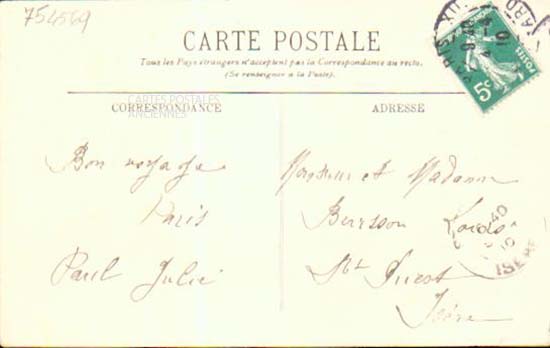 754569
CARTE POSTALE
Tous les Pays étrangers n'acceptent pas la Correspondance au recto.
(Se renseigner à la Poste).
CARTES POSTALES
ANCIENNES
CORRESPONDANCE
Bon voyage
Paris
Paul Julie
ADRESSE
Monsieur et Madame
Isère
5c
POSTES
PARIS XII
9-40
40
10
ISERE